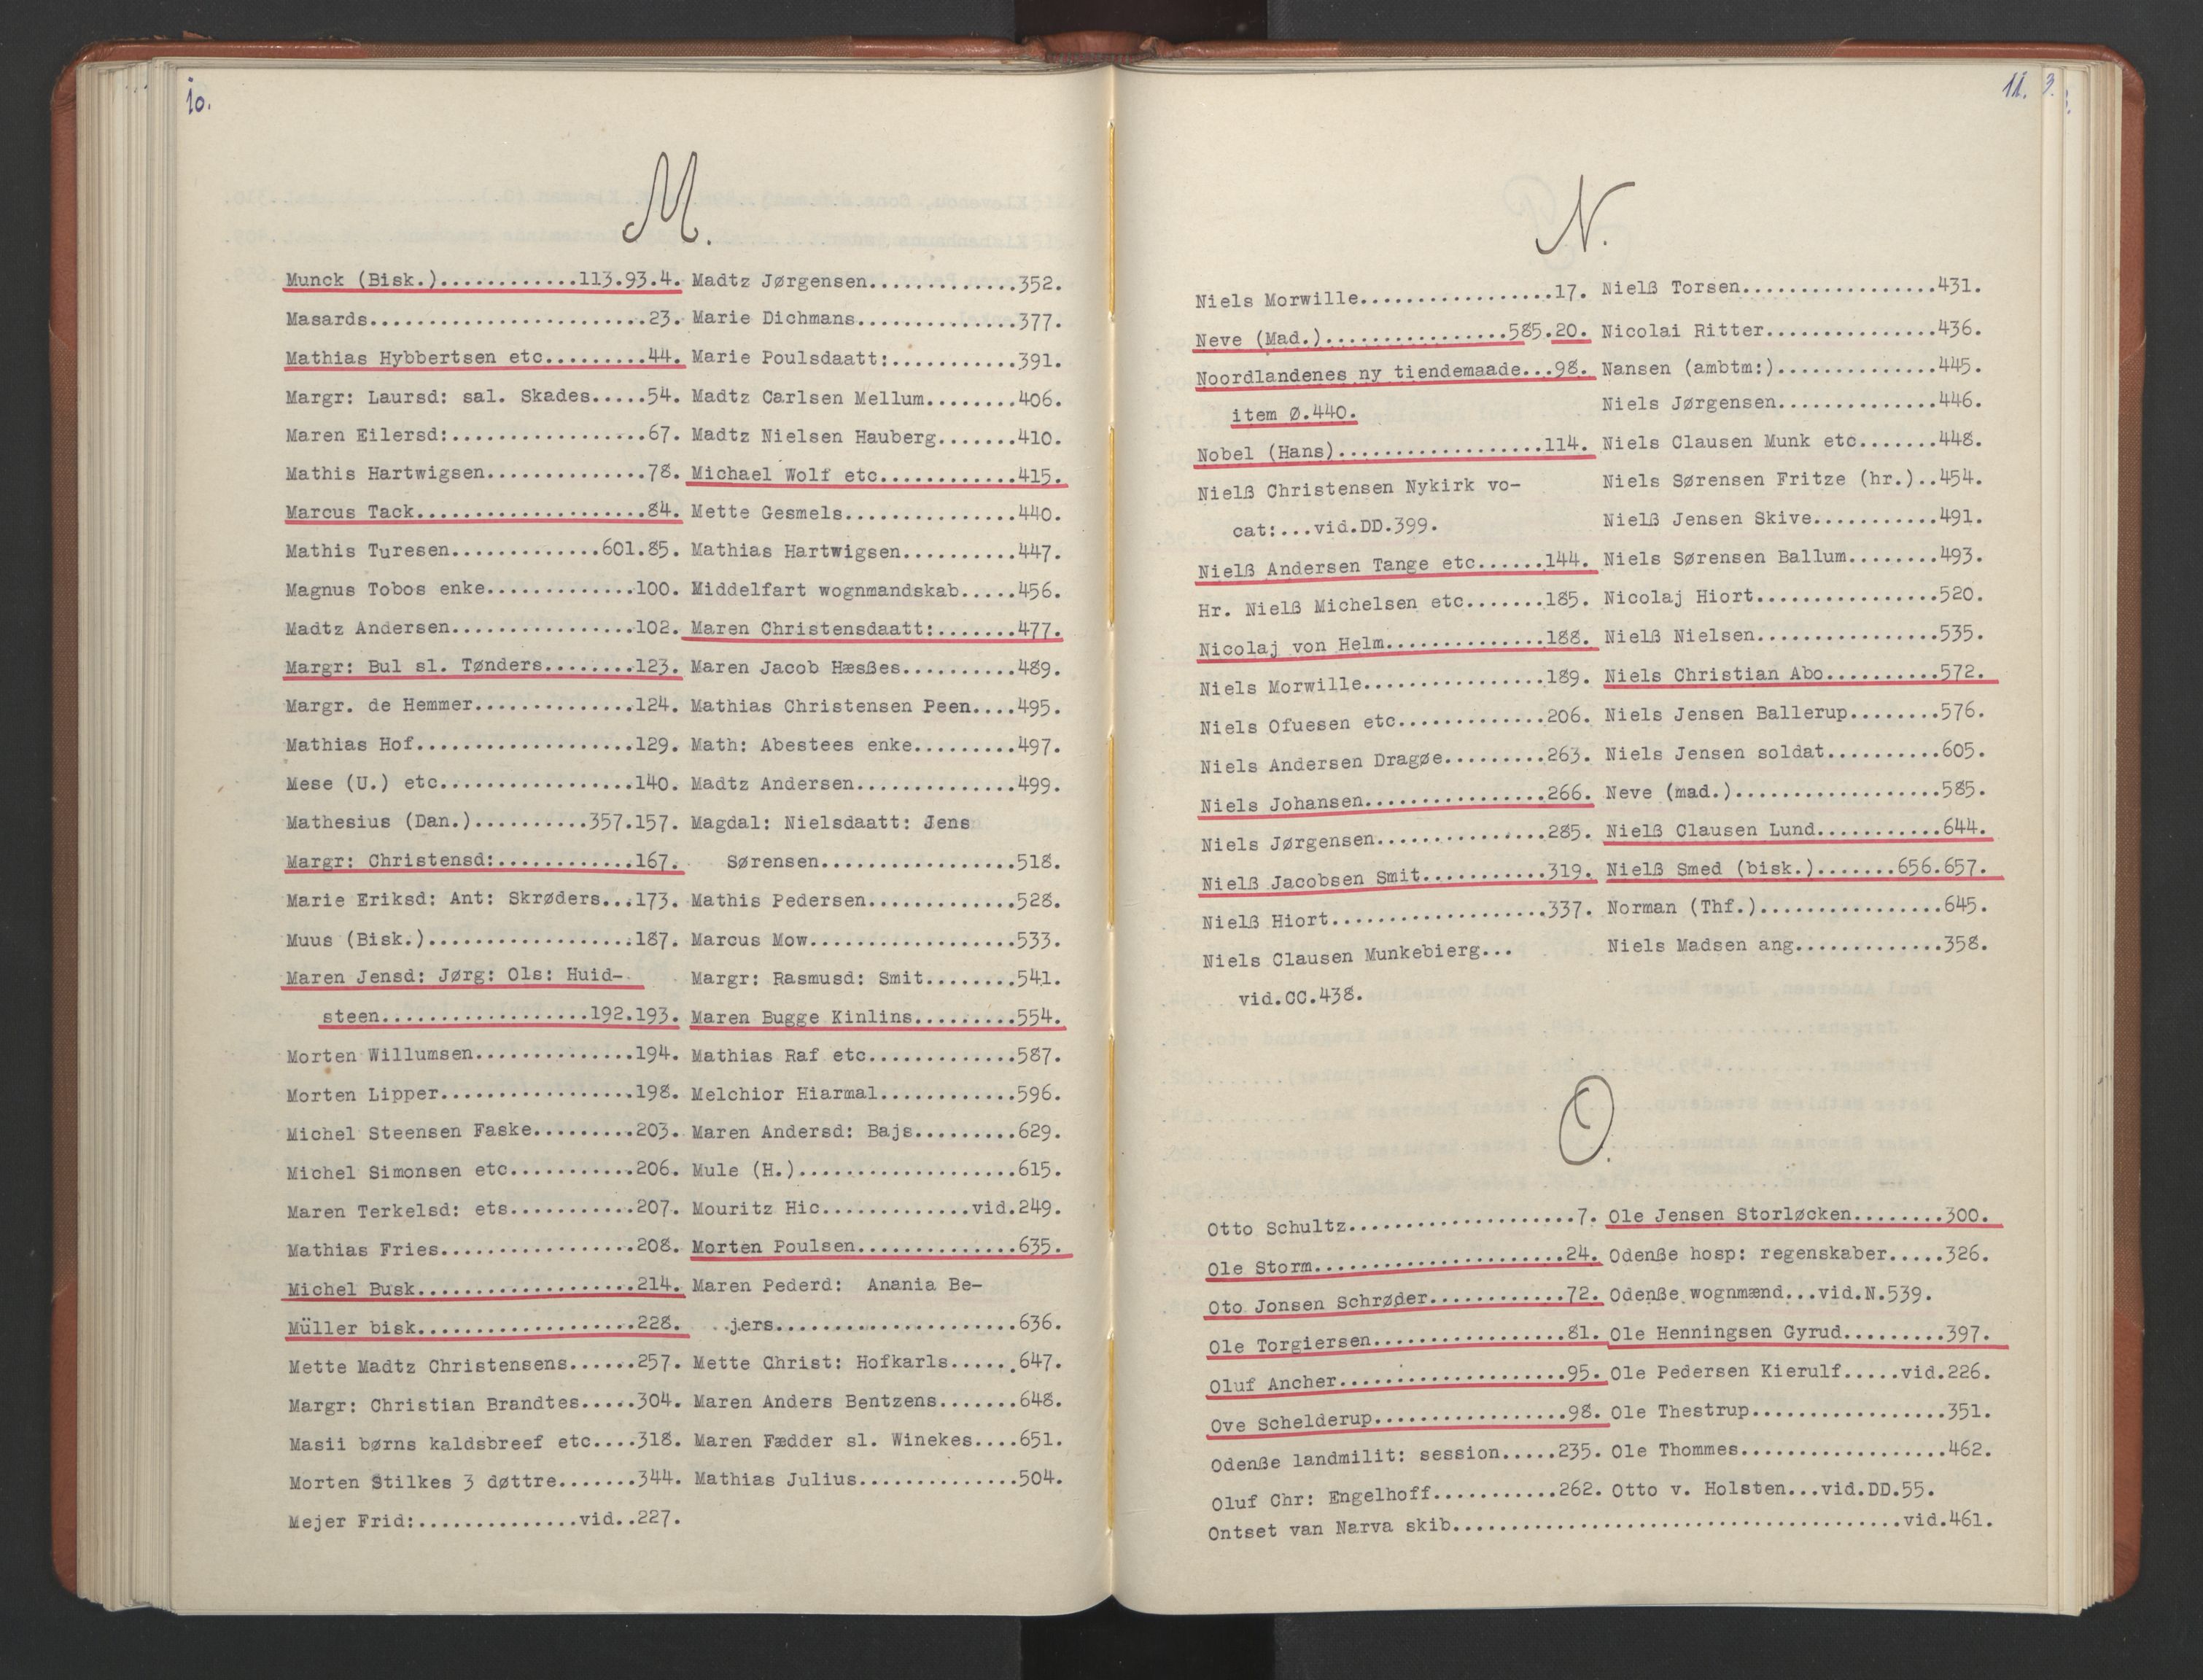 10.
M.
Munck (Bisk.)............113.93.4.
Masards........................23.
Mathias Hybbertsen etc.........44.
Margr: Laursd: sal. Skades.....54.
Maren Eilersd:.................67.
Mathis Hartwigsen..............78.
Marcus Tack....................84.
Mathis Turesen.............601.85.
Magnus Tobos enke.............100.
Madtz Andersen................102.
Margr: Bul sl. Tønders........123.
Margr. de Hemmer..............124.
Mathias Hof...................129.
Mese (U.) etc.................140.
Mathesius (Dan.)..........357.157.
Margr: Christensd:............167.
Marie Eriksd: Ant: Skrøders...173.
Muus (Bisk.)..................187.
Maren Jensd: Jørg: Ols: Huid-
steen..................192.193.
Morten Willumsen..............194.
Morten Lipper.................198.
Michel Steensen Faske.........203.
Michel Simonsen etc...........206.
Maren Terkelsd: ets...........207.
Mathias Fries.................208.
Michel Busk...................214.
Müller bisk...................228.
Mette Madtz Christensens......257.
Margr: Christian Brandtes.....304.
Masii børns kaldsbreef etc....318.
Morten Stilkes 3 døttre.......344.
Mejer Frid:..............vid..227.
Madtz Jørgensen.............352.
Marie Dichmans..............377.
Marie Poulsdaatt:...........391.
Madtz Carlsen Mellum........406.
Madtz Nielsen Hauberg.......410.
Michael Wolf etc............415.
Mette Gesmels...............440.
Mathias Hartwigsen..........447.
Middelfart wognmandskab.....456.
Maren Christensdaatt:.......477.
Maren Jacob Hæsßes..........489.
Mathias Christensen Peen....495.
Math: Abestees enke.........497.
Madtz Andersen..............499.
Magdal: Nielsdaatt: Jens
Sørensen.................518.
Mathis Pedersen.............528.
Marcus Mow..................533.
Margr: Rasmusd: Smit........541.
Maren Bugge Kinlins.........554.
Mathias Raf etc.............587.
Melchior Hiarmal............596.
Maren Andersd: Bajs.........629.
Mule (H.)...................615.
Mouritz Hic.............vid.249.
Morten Poulsen..............635.
Maren Pederd: Anania Be-
jers.....................636.
Mette Christ: Hofkarls......647.
Maren Anders Bentzens.......648.
Maren Fædder sl. Winekes....651.
Mathias Julius..............504.
11. 3.
N.
Niels Morwille.................17.
Neve (Mad.)................585.20.
Noordlandenes ny tiendemaade...98.
item Ø.440.
Nobel (Hans)..................114.
Nielß Christensen Nykirk vo-
cat:...vid.DD.399.
Nielß Andersen Tange etc......144.
Hr. Nielß Michelsen etc.......185.
Nicolaj von Helm..............188.
Niels Morwille................189.
Niels Ofuesen etc.............206.
Niels Andersen Dragøe.........263.
Niels Johansen................266.
Niels Jørgensen...............285.
Nielß Jacobsen Smit...........319.
Nielß Hiort...................337.
Niels Clausen Munkebierg...
vid.CC.438.
Nielß Torsen.................431.
Nicolai Ritter...............436.
Nansen (ambtm:)..............445.
Niels Jørgensen..............446.
Niels Clausen Munk etc.......448.
Niels Sørensen Fritze (hr.)..454.
Nielß Jensen Skive...........491.
Niels Sørensen Ballum........493.
Nicolaj Hiort................520.
Nielß Nielsen................535.
Niels Christian Abo..........572.
Niels Jensen Ballerup........576.
Niels Jensen soldat..........605.
Neve (mad.)..................585.
Nielß Clausen Lund...........644.
Nielß Smed (bisk.).......656.657.
Norman (Thf.)................645.
Niels Madsen ang.............358.
O.
Otto Schultz....................7.
Ole Storm......................24.
Oto Jonsen Schrøder............72.
Ole Torgiersen.................81.
Oluf Ancher....................95.
Ove Schelderup.................98.
Odenße landmilit: session.....235.
Oluf Chr: Engelhoff...........262.
Ole Jensen Storløcken........300.
Odenße hosp: regenskaber.....326.
Odenße wognmænd...vid.N.539.
Ole Henningsen Gyrud.........397.
Ole Pedersen Kierulf.....vid.226.
Ole Thestrup.................351.
Ole Thommes..................462.
Otto v. Holsten...vid.DD.55.
Ontset van Narva skib........................................vid.461.